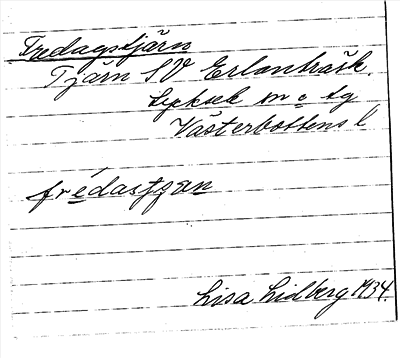 Fredagstjärn
Tjärn SV Erlanträsk.
Lycksele sn o tg
Västerbottens l
frédastjæn
Lisa Lidberg 1934.